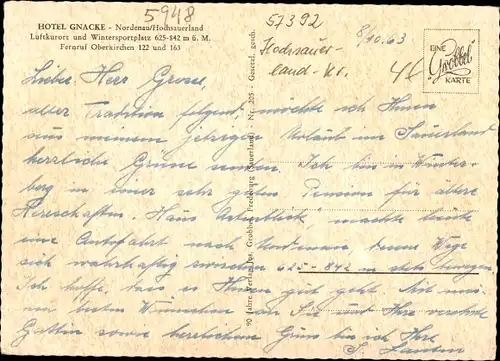 5948
HOTEL GNACKE - Nordenau/Hochsauerland
Luftkurort und Wintersportplatz 625-842 m ü. M.
Fernruf Oberkirchen 122 und 163
57392
Hochsauer-
land-Kr.
8/10.63
EINE
Grobbel
KARTE
Liebe Herr Grosse,
alter Tradition folgend, möchte ich Ihnen
aus meinem jetzigen Urlaub im Sauerland
herzliche Grüsse senden. Ich bin in Winter-
berg in einer sehr guten Pension für ältere
Herrschaften. Haus Unterblick, machte heute
eine Autofahrt nach Nordenau, dessen Wege
sich wahrhaftig zwischen 625-842 m stets bewegen.
Ich hoffe, dass es Ihnen gut geht. Mit mei-
nen besten Wünschen an Sie und Ihre verehrte
Gattin sowie herzlichem Gruss bin ich Ihre
90 Jahre Verlag Jos. Grobbel, Fredeburg (Sauerland) Nr. 205 - Gesetzl. gesch.